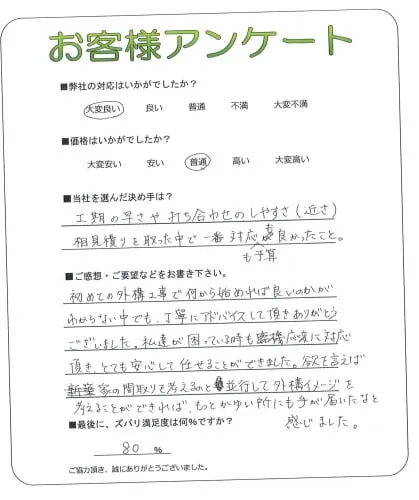 お客様アンケート
■弊社の対応はいかがでしたか？
大変良い 良い 普通 不満 大変不満
■価格はいかがでしたか？
大変安い 安い 普通 高い 大変高い
■当社を選んだ決め手は？
工期の早さや打ち合わせのしやすさ(近さ)
相見積りを取った中で一番対応が良かったこと。
も予算も
■ご感想・ご要望などをお書き下さい。
初めての外構工事で何から始めれば良いのかが
わからない中でも、丁寧にアドバイスして頂きありがとう
ございました。私達が困っている時も臨機応変に対応
頂き、とても安心して任せることができました。欲を言えば
新築家の間取りを考えるのと並行して外構イメージを
考えることができれば、もっとかゆい所にも手が届いたなと
感じました。
■最後に、ズバリ満足度は何％ですか？
80 %
ご協力頂き、誠にありがとうございました。